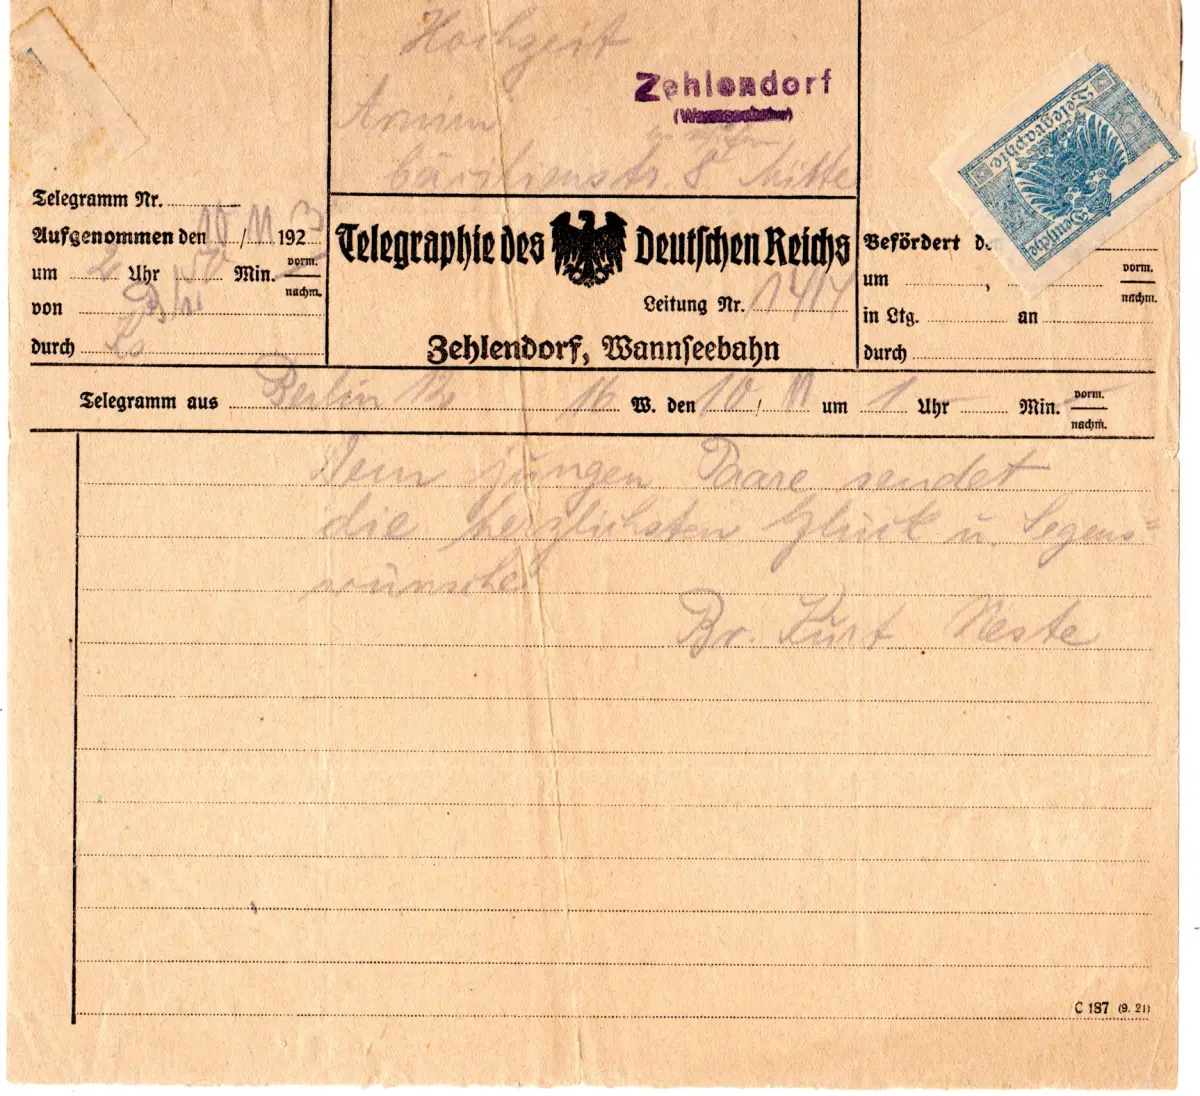 Hochzeit
Zehlendorf
Armin
8 Hütte
Telegramm Nr.
Aufgenommen den 10/11 1923
um 2 Uhr 50 Min. vorm. nachm.
von
durch
Telegraphie des Deutschen Reichs
Leitung Nr.
Zehlendorf, Wannseebahn
Befördert
um , vorm. nachm.
in Ltg. an
durch
Deutsche Telegraphie
Telegramm aus Berlin 12 16 W. den 10 / 11 um 1 Uhr Min. vorm. nachm.
Dem jungen Paare sendet
die herzlichsten Glück u. Segens=
wünsche
Br. Kurt Neste
C 187 (9. 21)